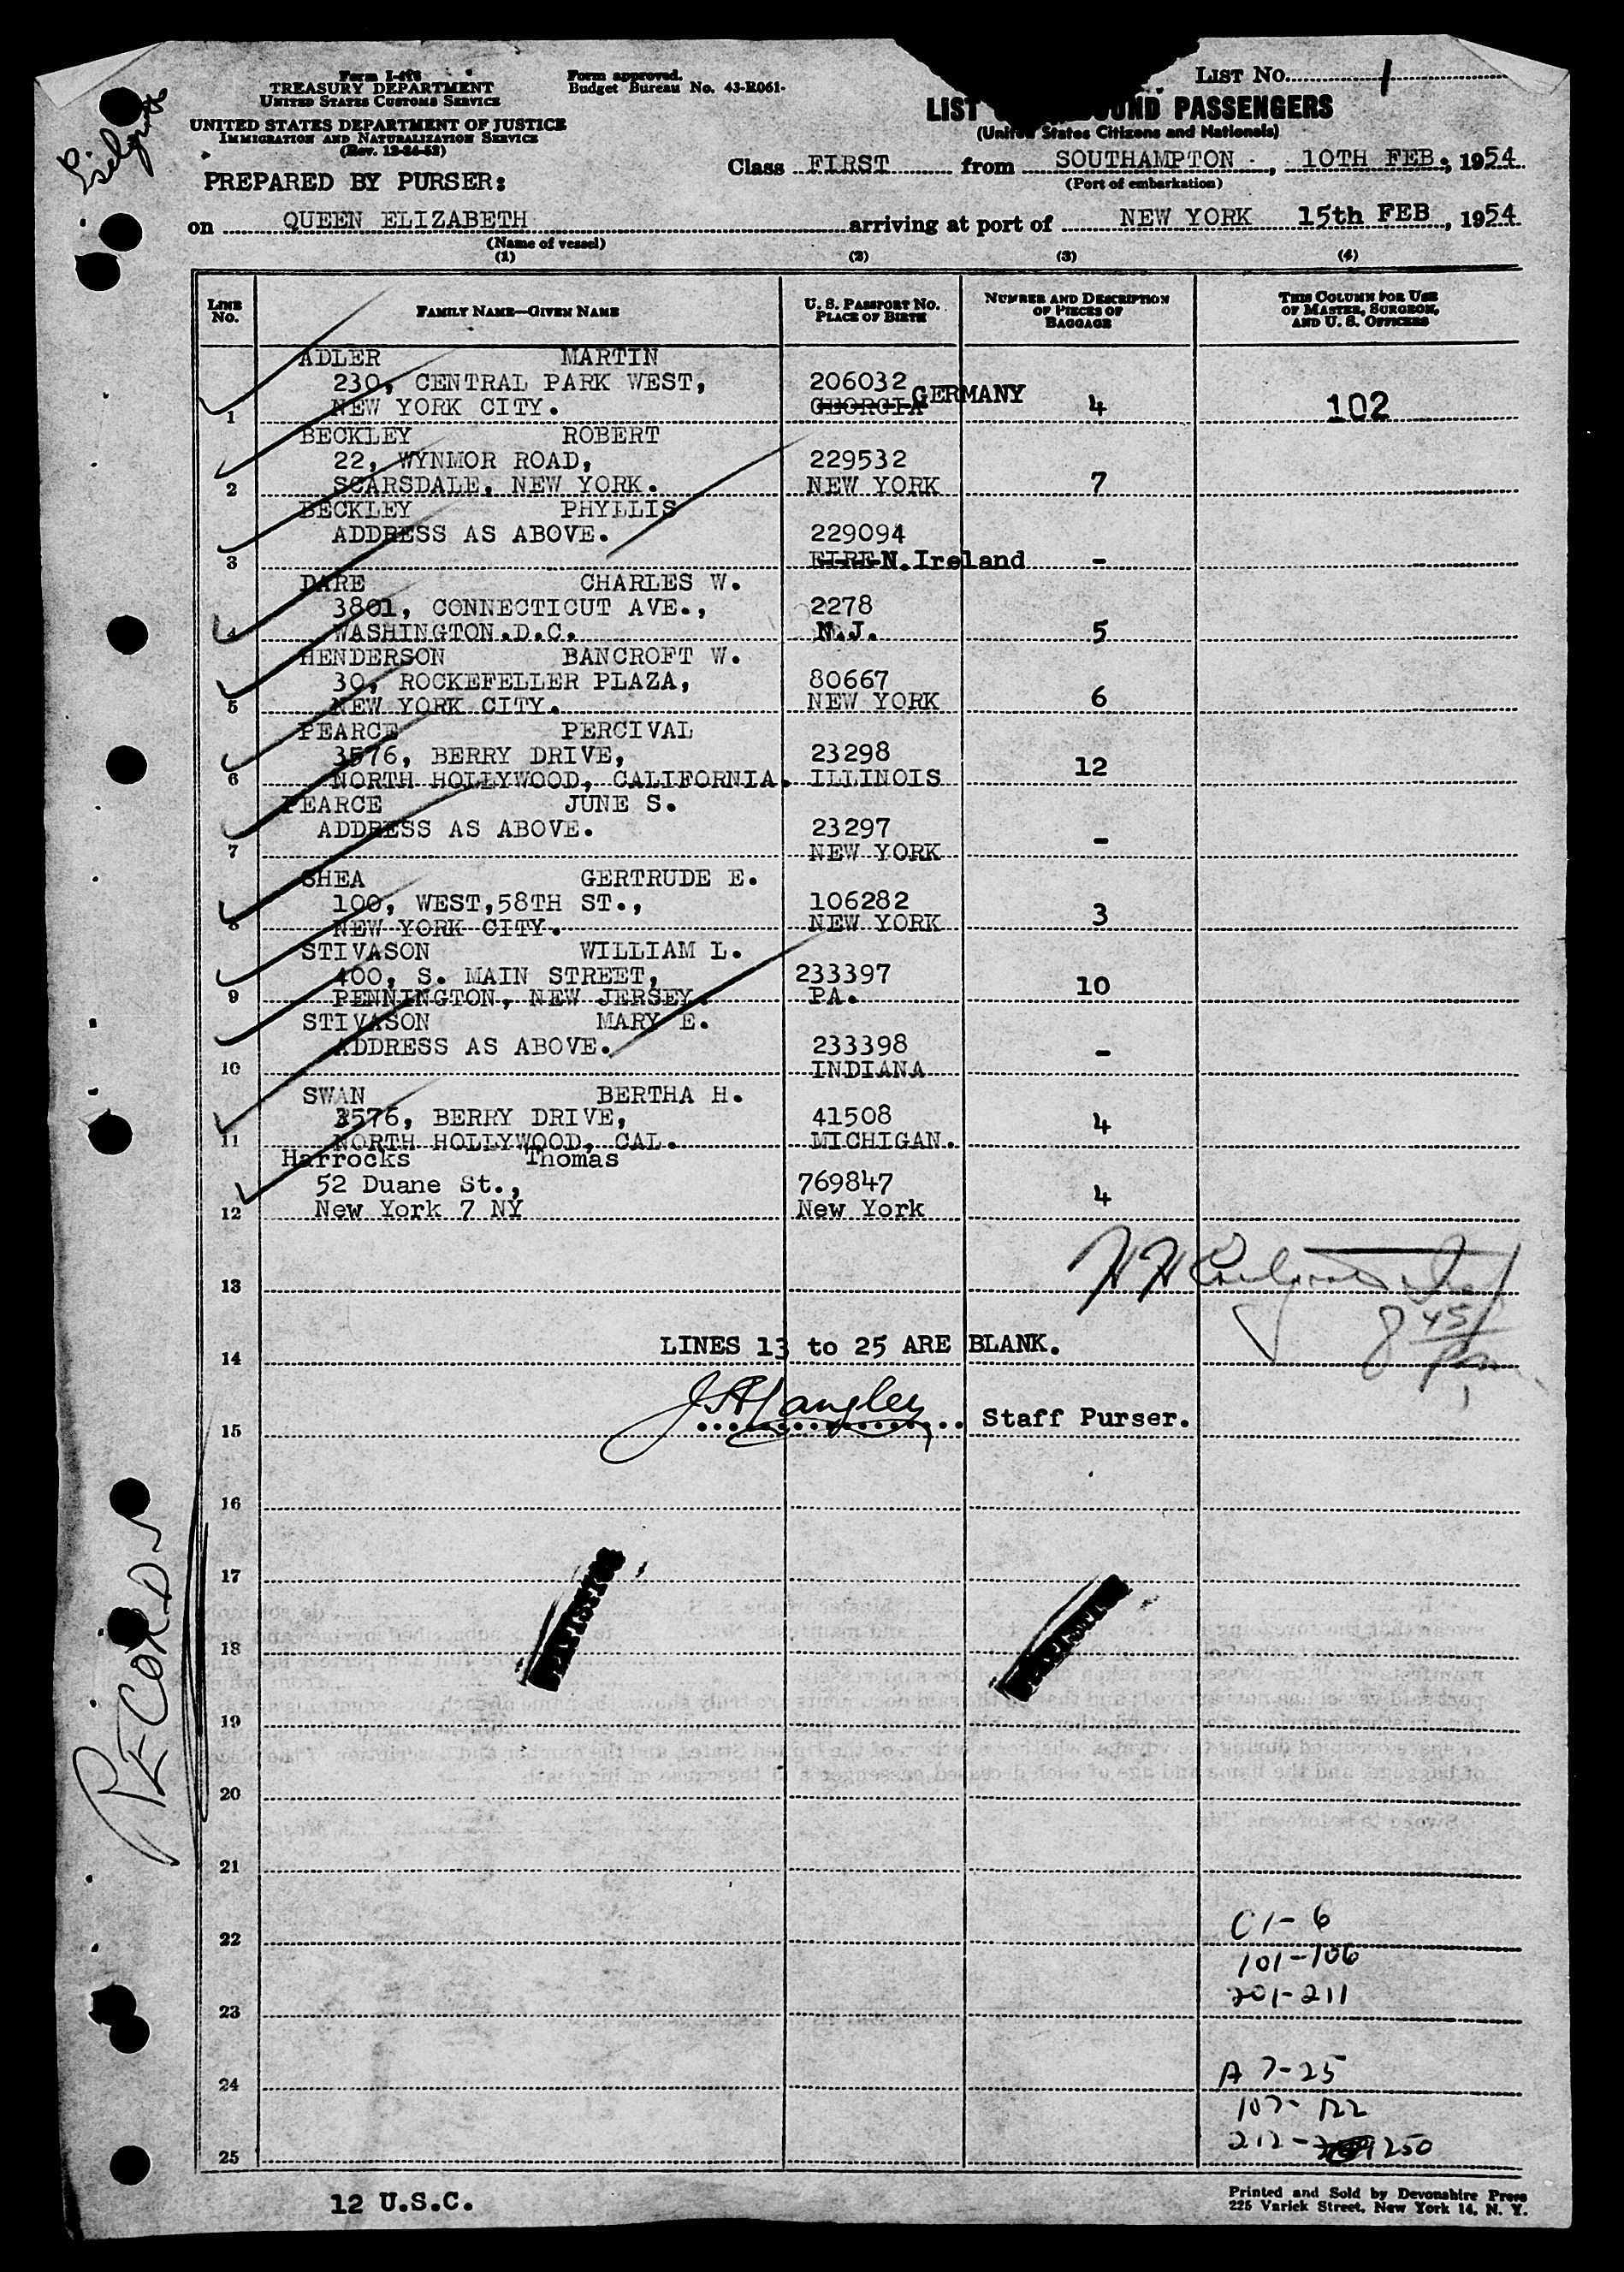 Form I-418
TREASURY DEPARTMENT
UNITED STATES CUSTOMS SERVICE
UNITED STATES DEPARTMENT OF JUSTICE
IMMIGRATION AND NATURALIZATION SERVICE
(Rev. 12-24-52)
PREPARED BY PURSER:
Form approved.
Budget Bureau No. 43-R061-
LIST No. 1
LIST OUND PASSENGERS
(United States Citizens and Nationals)
Class FIRST from SOUTHAMPTON, 10TH FEB, 1954
(Port of embarkation)
on QUEEN ELIZABETH arriving at port of NEW YORK 15th FEB, 1954
(Name of vessel)
(1) (2) (3) (4)
LINE No. FAMILY NAME—GIVEN NAME U. S. PASSPORT NO. PLACE OF BIRTH NUMBER AND DESCRIPTION OF PIECES OF BAGGAGE THIS COLUMN FOR USE OF MASTER, SURGEON, AND U. S. OFFICERS
ADLER MARTIN
230, CENTRAL PARK WEST, 206032
1 NEW YORK CITY. GEORGIA GERMANY 4 102
BECKLEY ROBERT
22, WYNMOR ROAD, 229532
2 SCARSDALE, NEW YORK. NEW YORK 7
BECKLEY PHYLLIS
ADDRESS AS ABOVE. 229094
3 EIRE N.Ireland -
DARE CHARLES W.
3801, CONNECTICUT AVE., 2278
4 WASHINGTON.D.C. N.J. 5
HENDERSON BANCROFT W.
30, ROCKEFELLER PLAZA, 80667
5 NEW YORK CITY. NEW YORK 6
PEARCE PERCIVAL
3576, BERRY DRIVE, 23298
6 NORTH HOLLYWOOD, CALIFORNIA. ILLINOIS 12
PEARCE JUNE S.
ADDRESS AS ABOVE. 23297
7 NEW YORK -
SHEA GERTRUDE E.
100, WEST,58TH ST., 106282
8 NEW YORK CITY. NEW YORK 3
STIVASON WILLIAM L.
400, S. MAIN STREET, 233397
9 PENNINGTON, NEW JERSEY. PA. 10
STIVASON MARY E.
ADDRESS AS ABOVE. 233398
10 INDIANA -
SWAN BERTHA H.
3576, BERRY DRIVE, 41508
11 NORTH HOLLYWOOD, CAL. MICHIGAN. 4
Harrocks Thomas
52 Duane St., 769847
12 New York 7 NY New York 4
13
LINES 13 to 25 ARE BLANK.
14
J A Langley Staff Purser.
15
16
17
18
19
20
21
22
23
24
25
RECORD
C 1-6
101-106
201-211
A 7-25
107-122
212-250
12 U.S.C.
Printed and Sold by Devonshire Press
225 Varick Street, New York 14, N. Y.